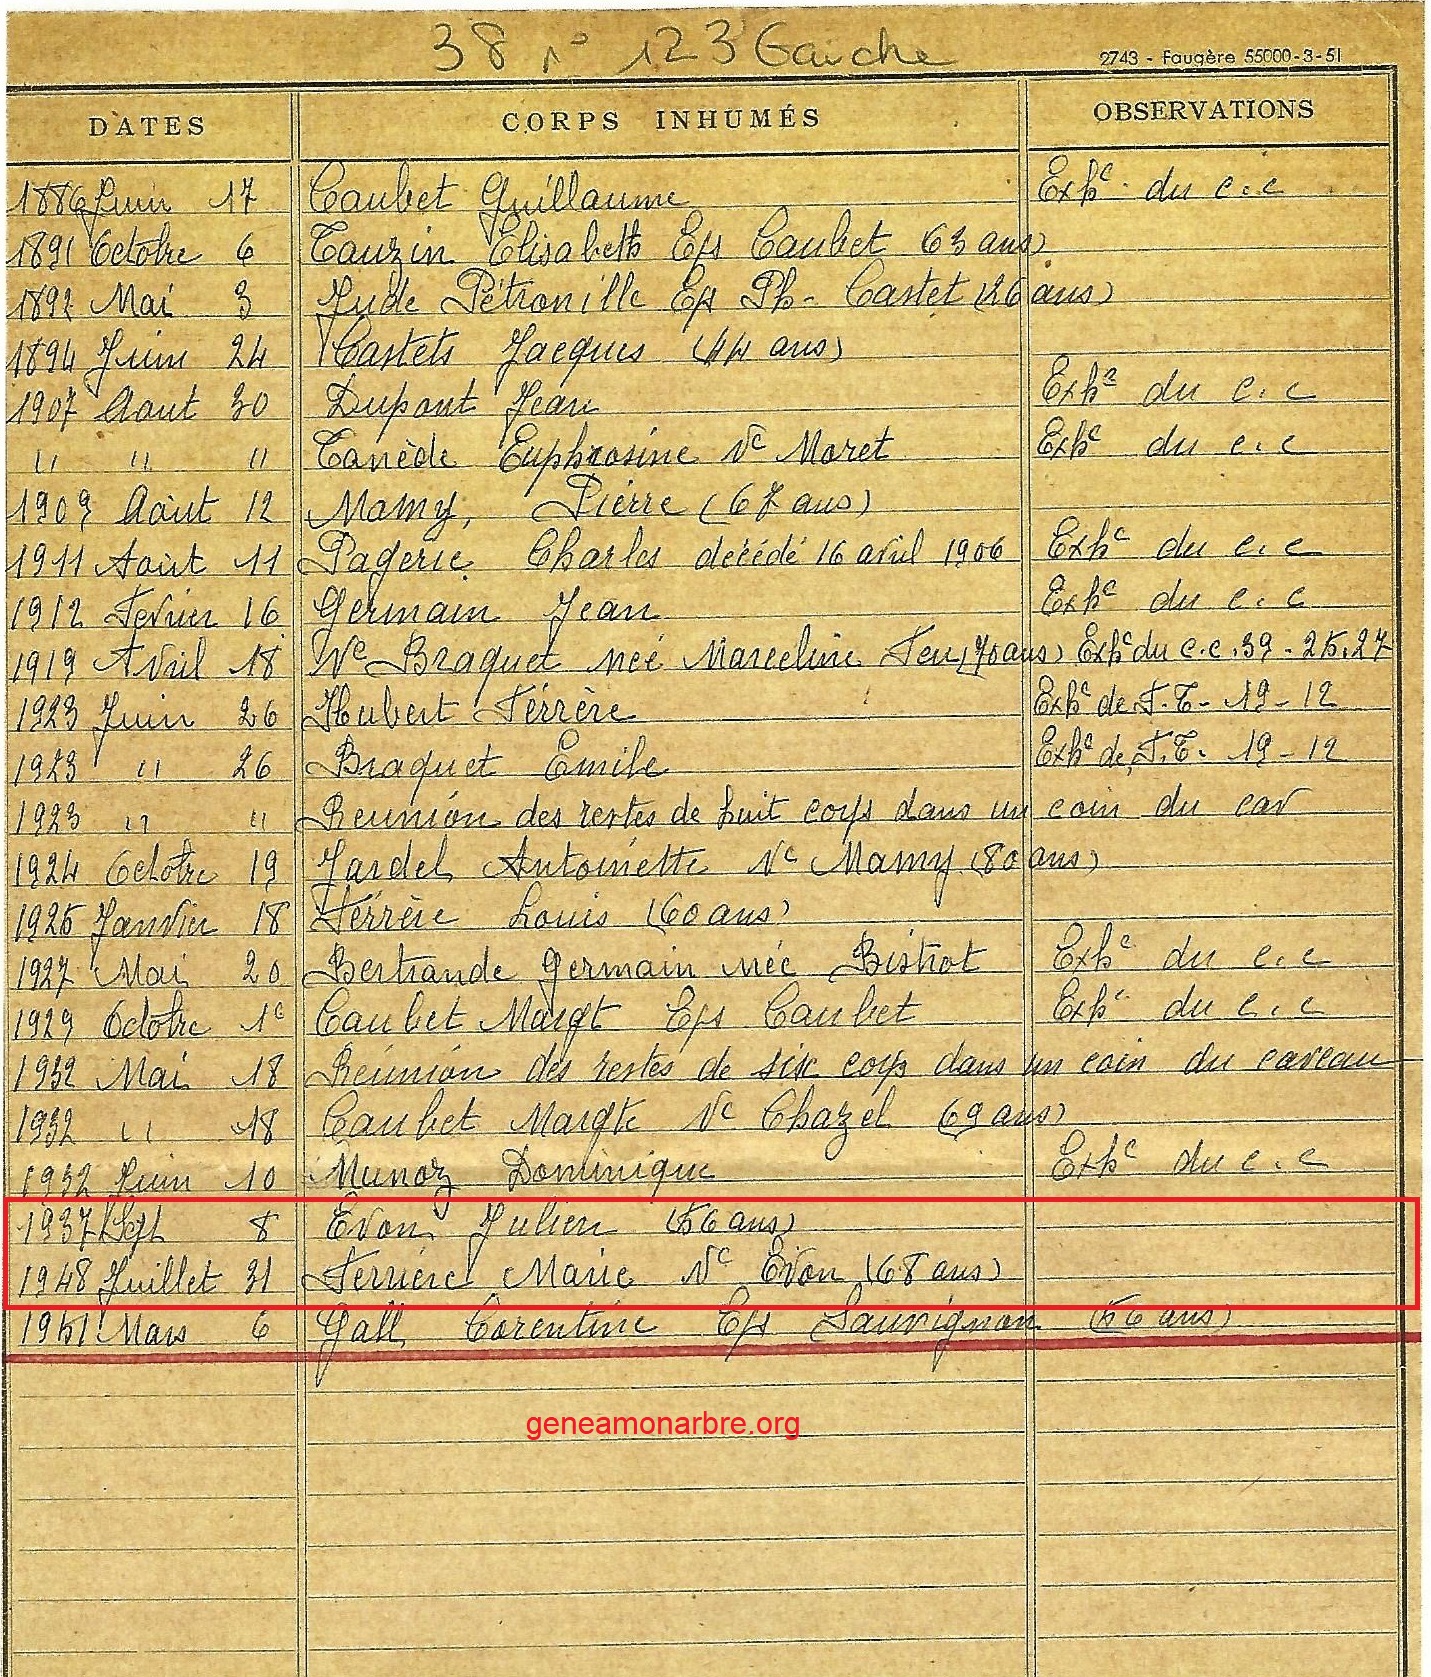 38 n° 123 Gauche
2743 - Faugère 55000-3-51
DATES CORPS INHUMÉS OBSERVATIONS
1886 Juin 17 Caubet Guillaume Exh.e du c.c
1891 Octobre 6 Tauzin Elisabeth Eps Caubet (63 ans)
1892 Mai 3 Jude Pétronille Eps Ph- Castet (26 ans)
1894 Juin 24 Castets Jacques (44 ans)
1907 Aout 30 Dupont Jean Exh.e du c.c
" " " Tanède Euphrosine Ve Moret Exh.e du c.c
1909 Août 12 Mamy, Pierre (67 ans)
1911 Août 11 Pagerie Charles décédé 16 avril 1906 Exh.e du c.c
1912 Fevrier 16 Germain Jean Exh.e du c.c
1919 Avril 18 Ve Braquet née Marceline Feu (70 ans) Exh.e du c.c. 39 - 25.27
1923 Juin 26 Hubert Férrère Exh.e de T.T- 19 - 12
1923 " 26 Braquet Emile Exh.e de T.T. 19 - 12
1923 " " Reunion des restes de huit corps dans un coin du cav
1924 Octobre 19 Jardel Antoinette Ve Mamy (80 ans)
1925 Janvier 18 Férrère Louis (60 ans)
1927 Mai 20 Bertrande Germain née Bistrot Exh.e du c.c
1929 Octobre 1e Caubet Margt Eps Caubet Exh.e du c.c
1932 Mai 18 Réunion des restes de six corps dans un coin du caveau
1932 " 18 Caubet Margte Ve Chazel (69 ans)
1932 Juin 10 Munoz Dominique Exh.e du c.c
1937 Sept 8 Evon Julien (56 ans)
1948 Juillet 31 Ferrière Marie Ve Evon (68 ans)
1951 Mars 6 Gall Corentine Eps Sauvignon (56 ans)
geneamonarbre.org